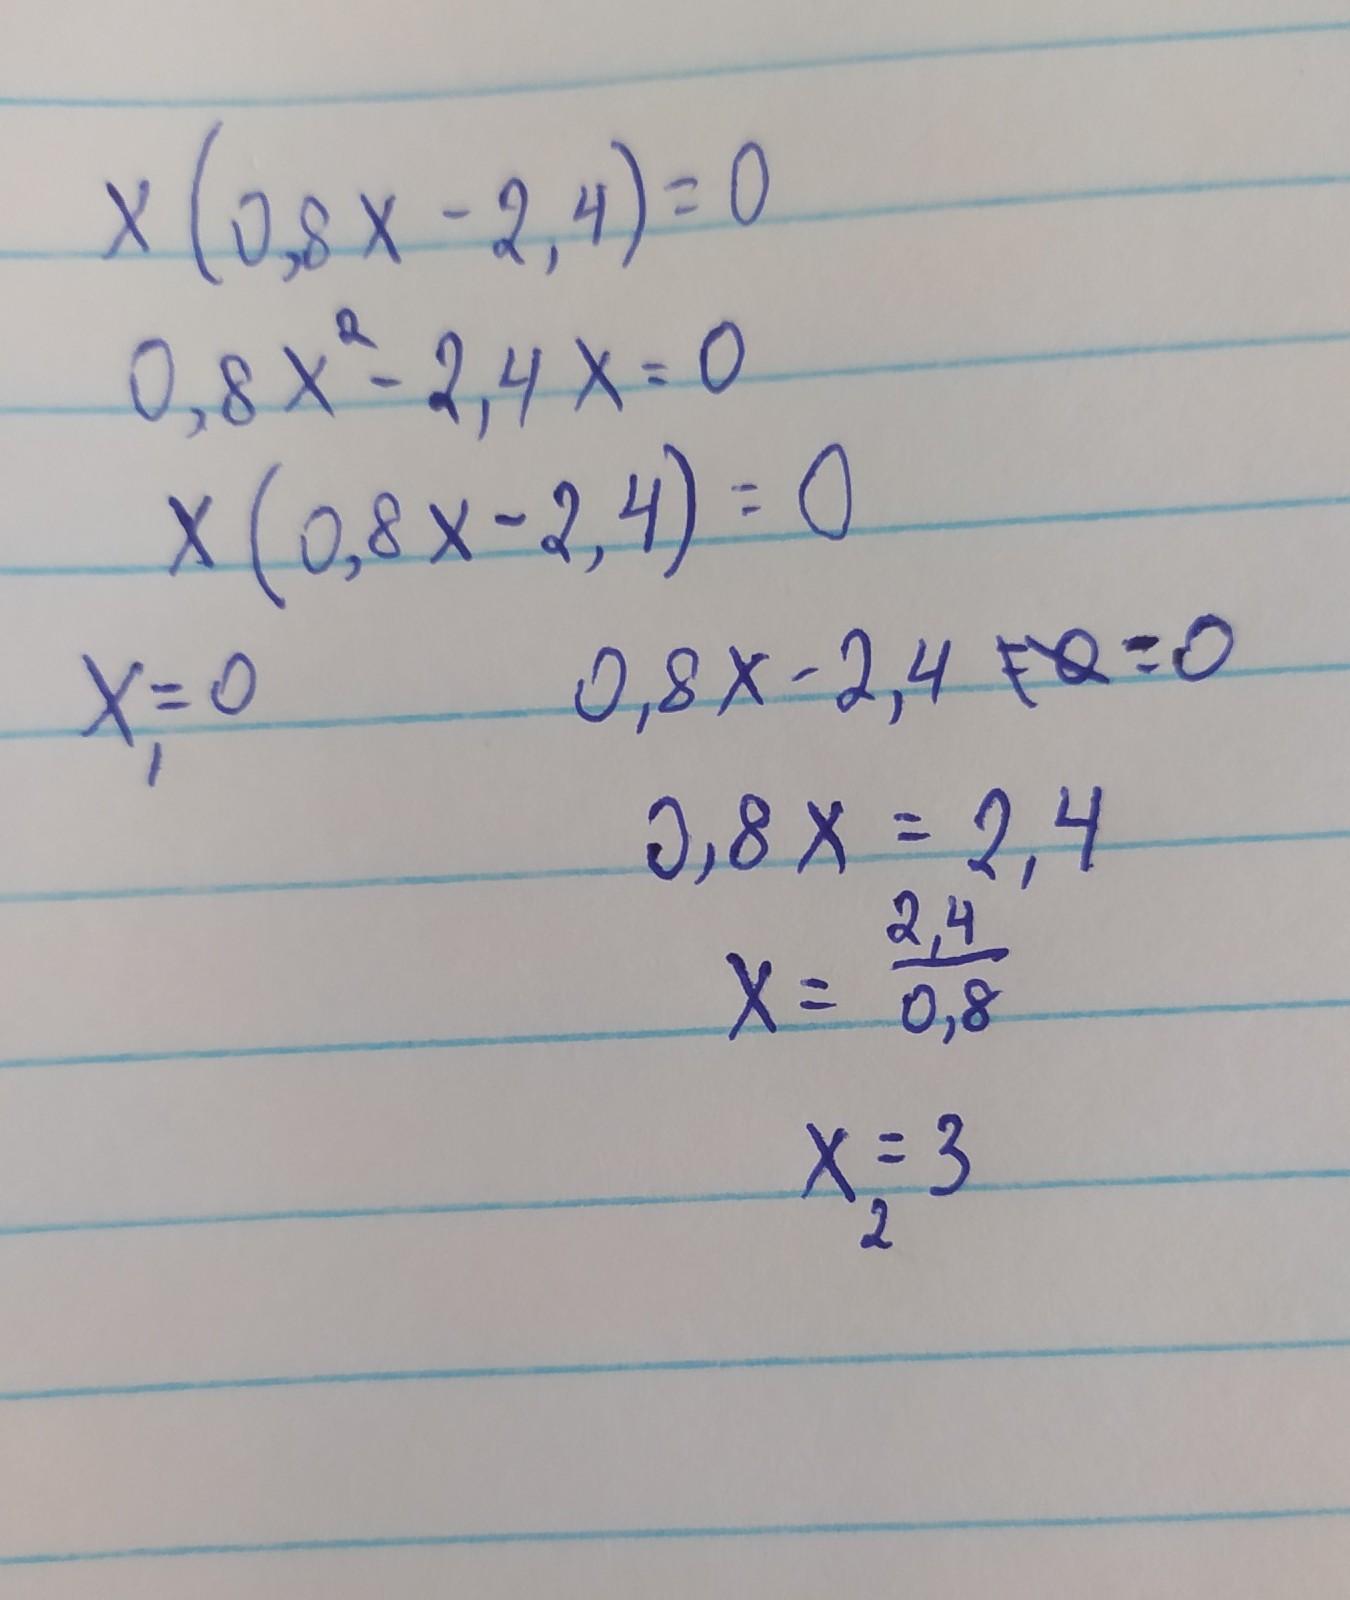 x(0,8x-2,4)=0
0,8x²-2,4x=0
x(0,8x-2,4)=0
x₁=0 0,8x-2,4 =0
0,8x=2,4
x=2,4/0,8
x₂=3